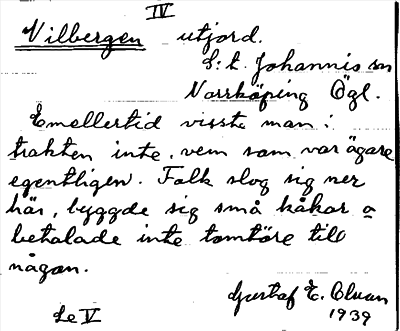 IV
Vilbergen utjord.
S:t. Johannis sn
Norrköping Ögl.
Emellertid visste man i
trakten inte, vem som var ägare
egentligen. Folk slog sig ner
här, byggde sig små kåkar o
betalade inte tomtöre till
någon.
Gustaf E.
1939
Le V